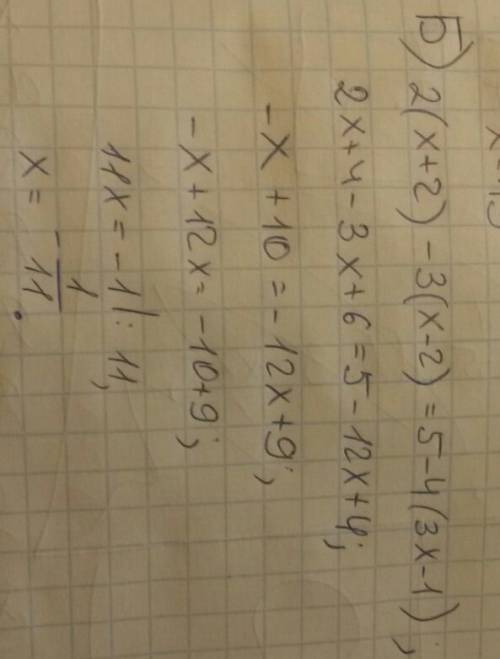 Б) 2(x+2) -3(x-2) = 5-4(3x-1);
2x+4-3x+6=5-12x+4;
-x +10 = -12x+9;
-x+12x= -10+9;
11x = -1 |: 11;
x = - 1/11.